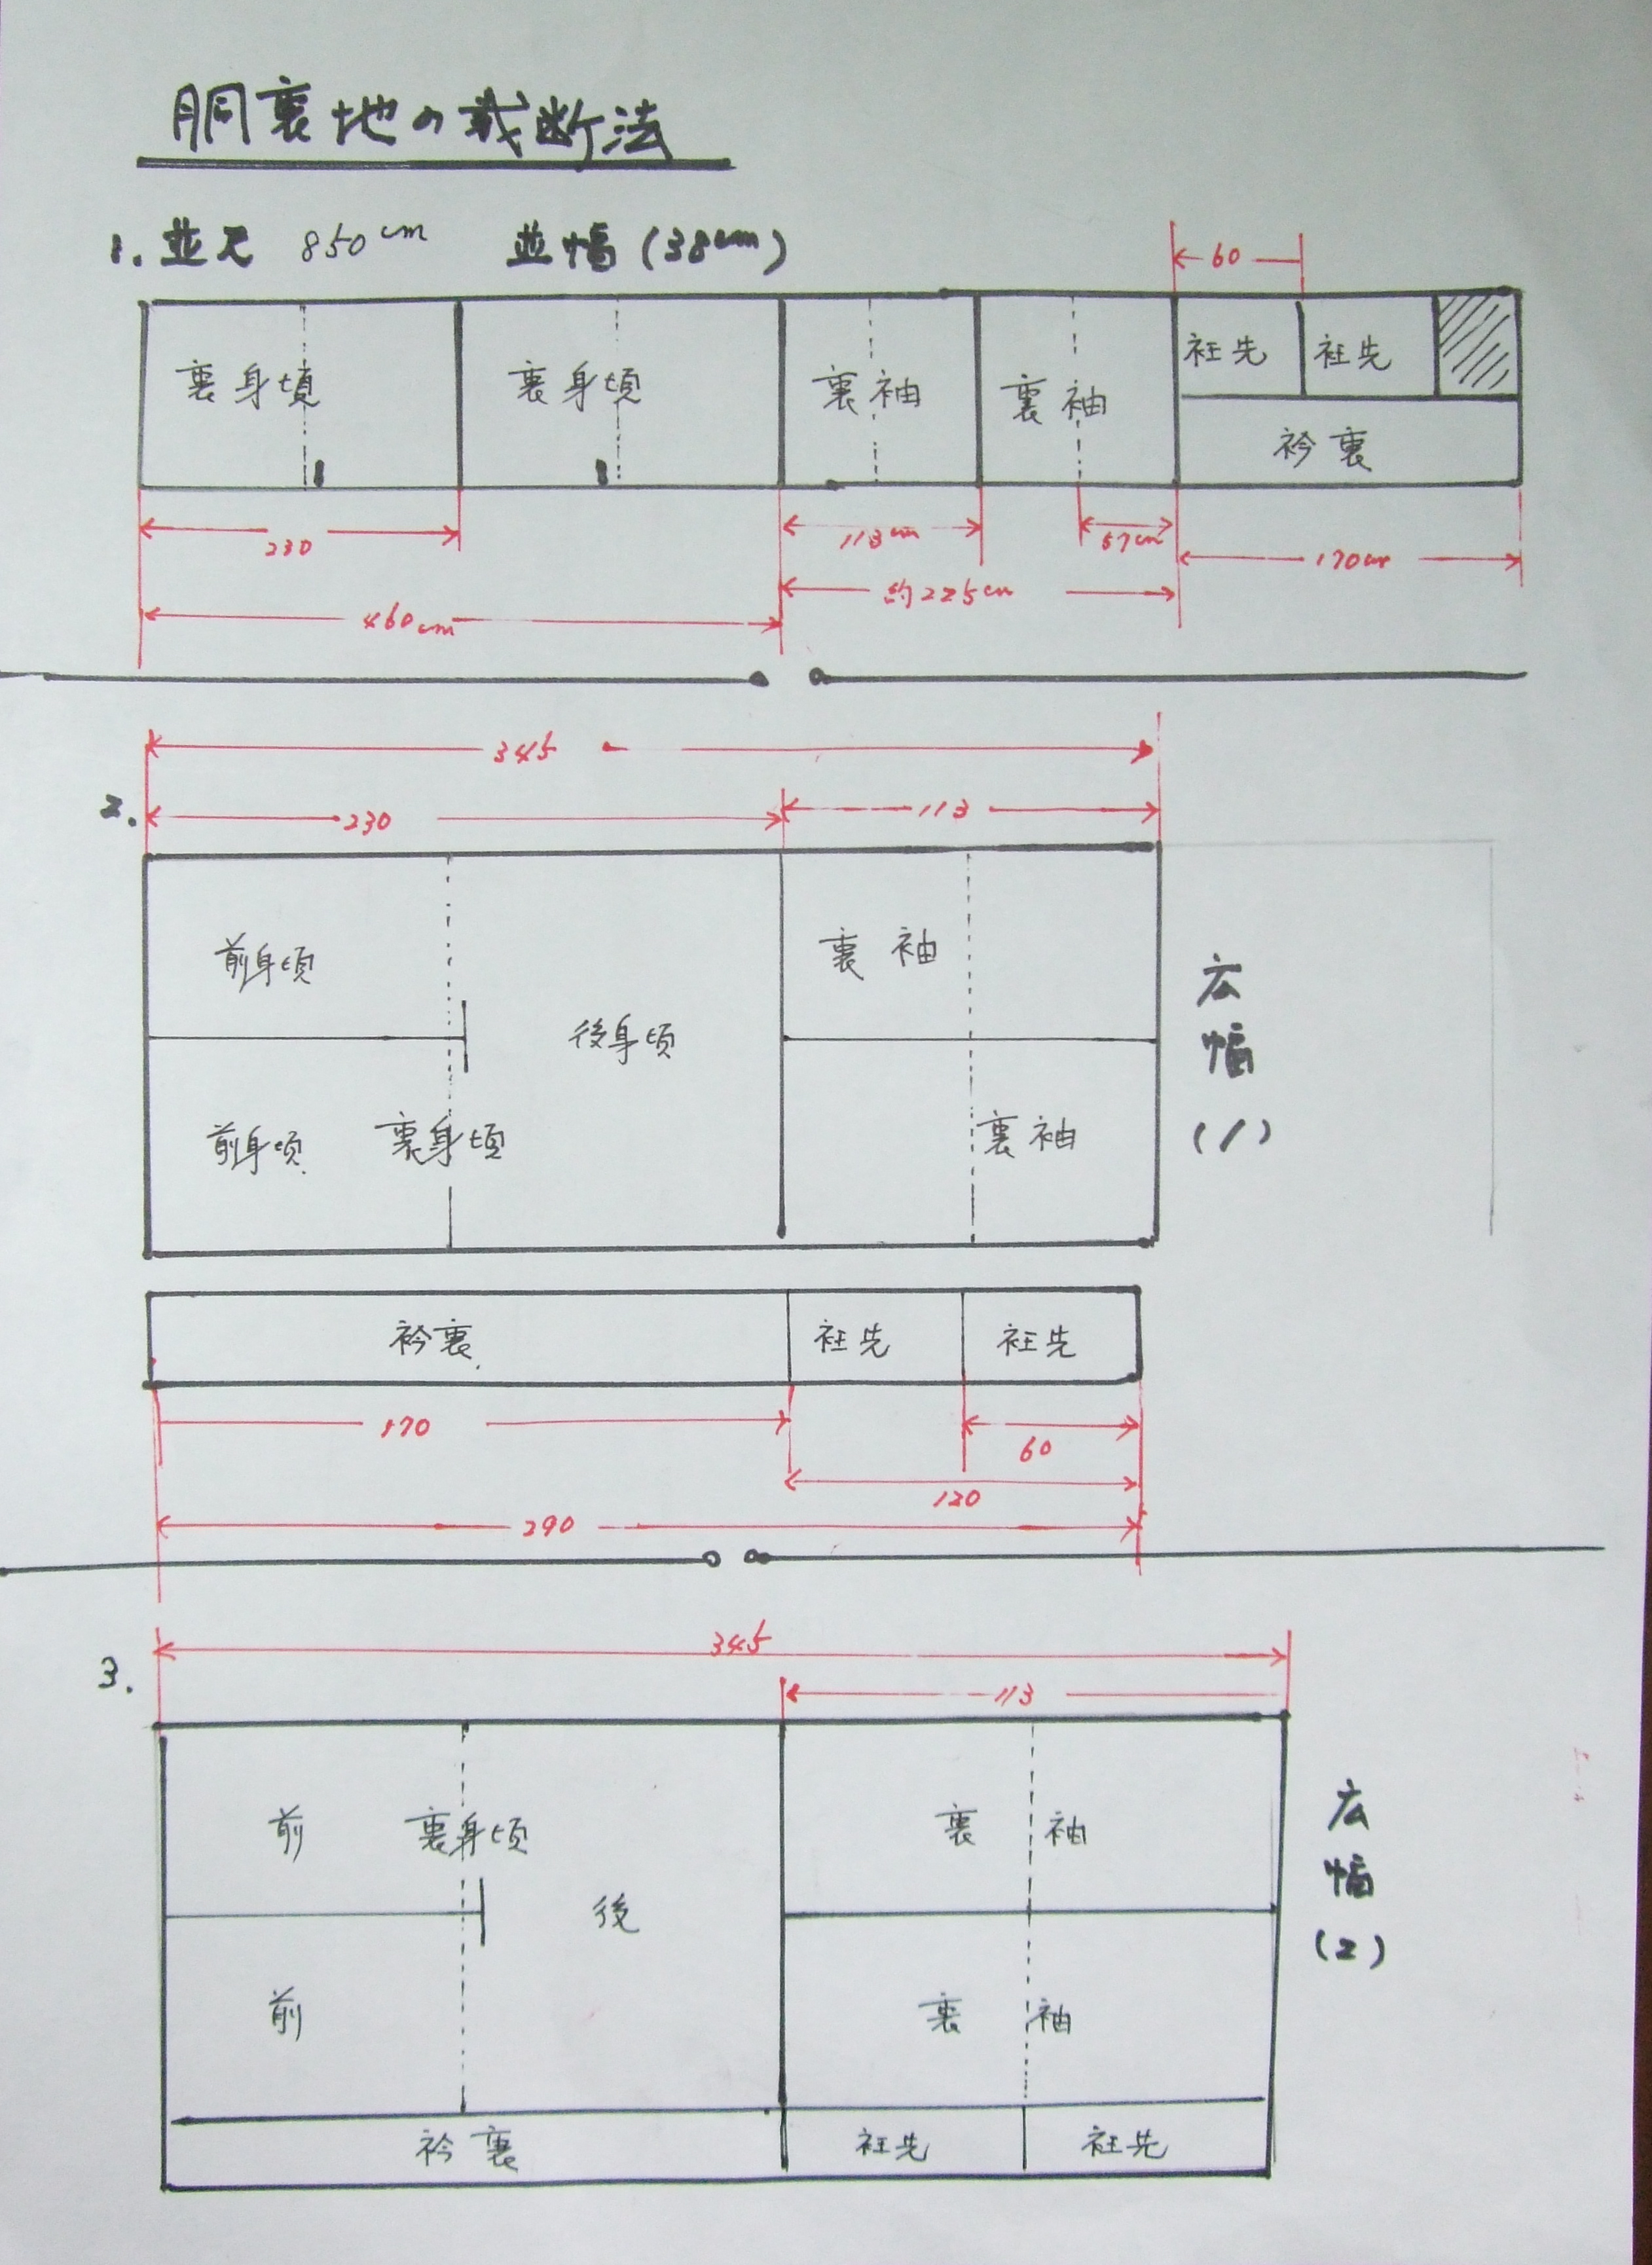 胴裏地の裁断法
1. 並尺 850cm 並幅(38cm)
60
裏身頃 裏身頃 裏袖 裏袖 衽先 衽先
衿裏
230 113cm 57cm 170cm
460cm 約225cm
345
2. 230 113
前身頃 後身頃 裏袖
前身頃 裏身頃 裏袖
広幅(1)
衿裏 衽先 衽先
170 60
120
290
345
3. 113
前 裏身頃 後 裏袖
前 裏袖
広幅(2)
衿裏 衽先 衽先